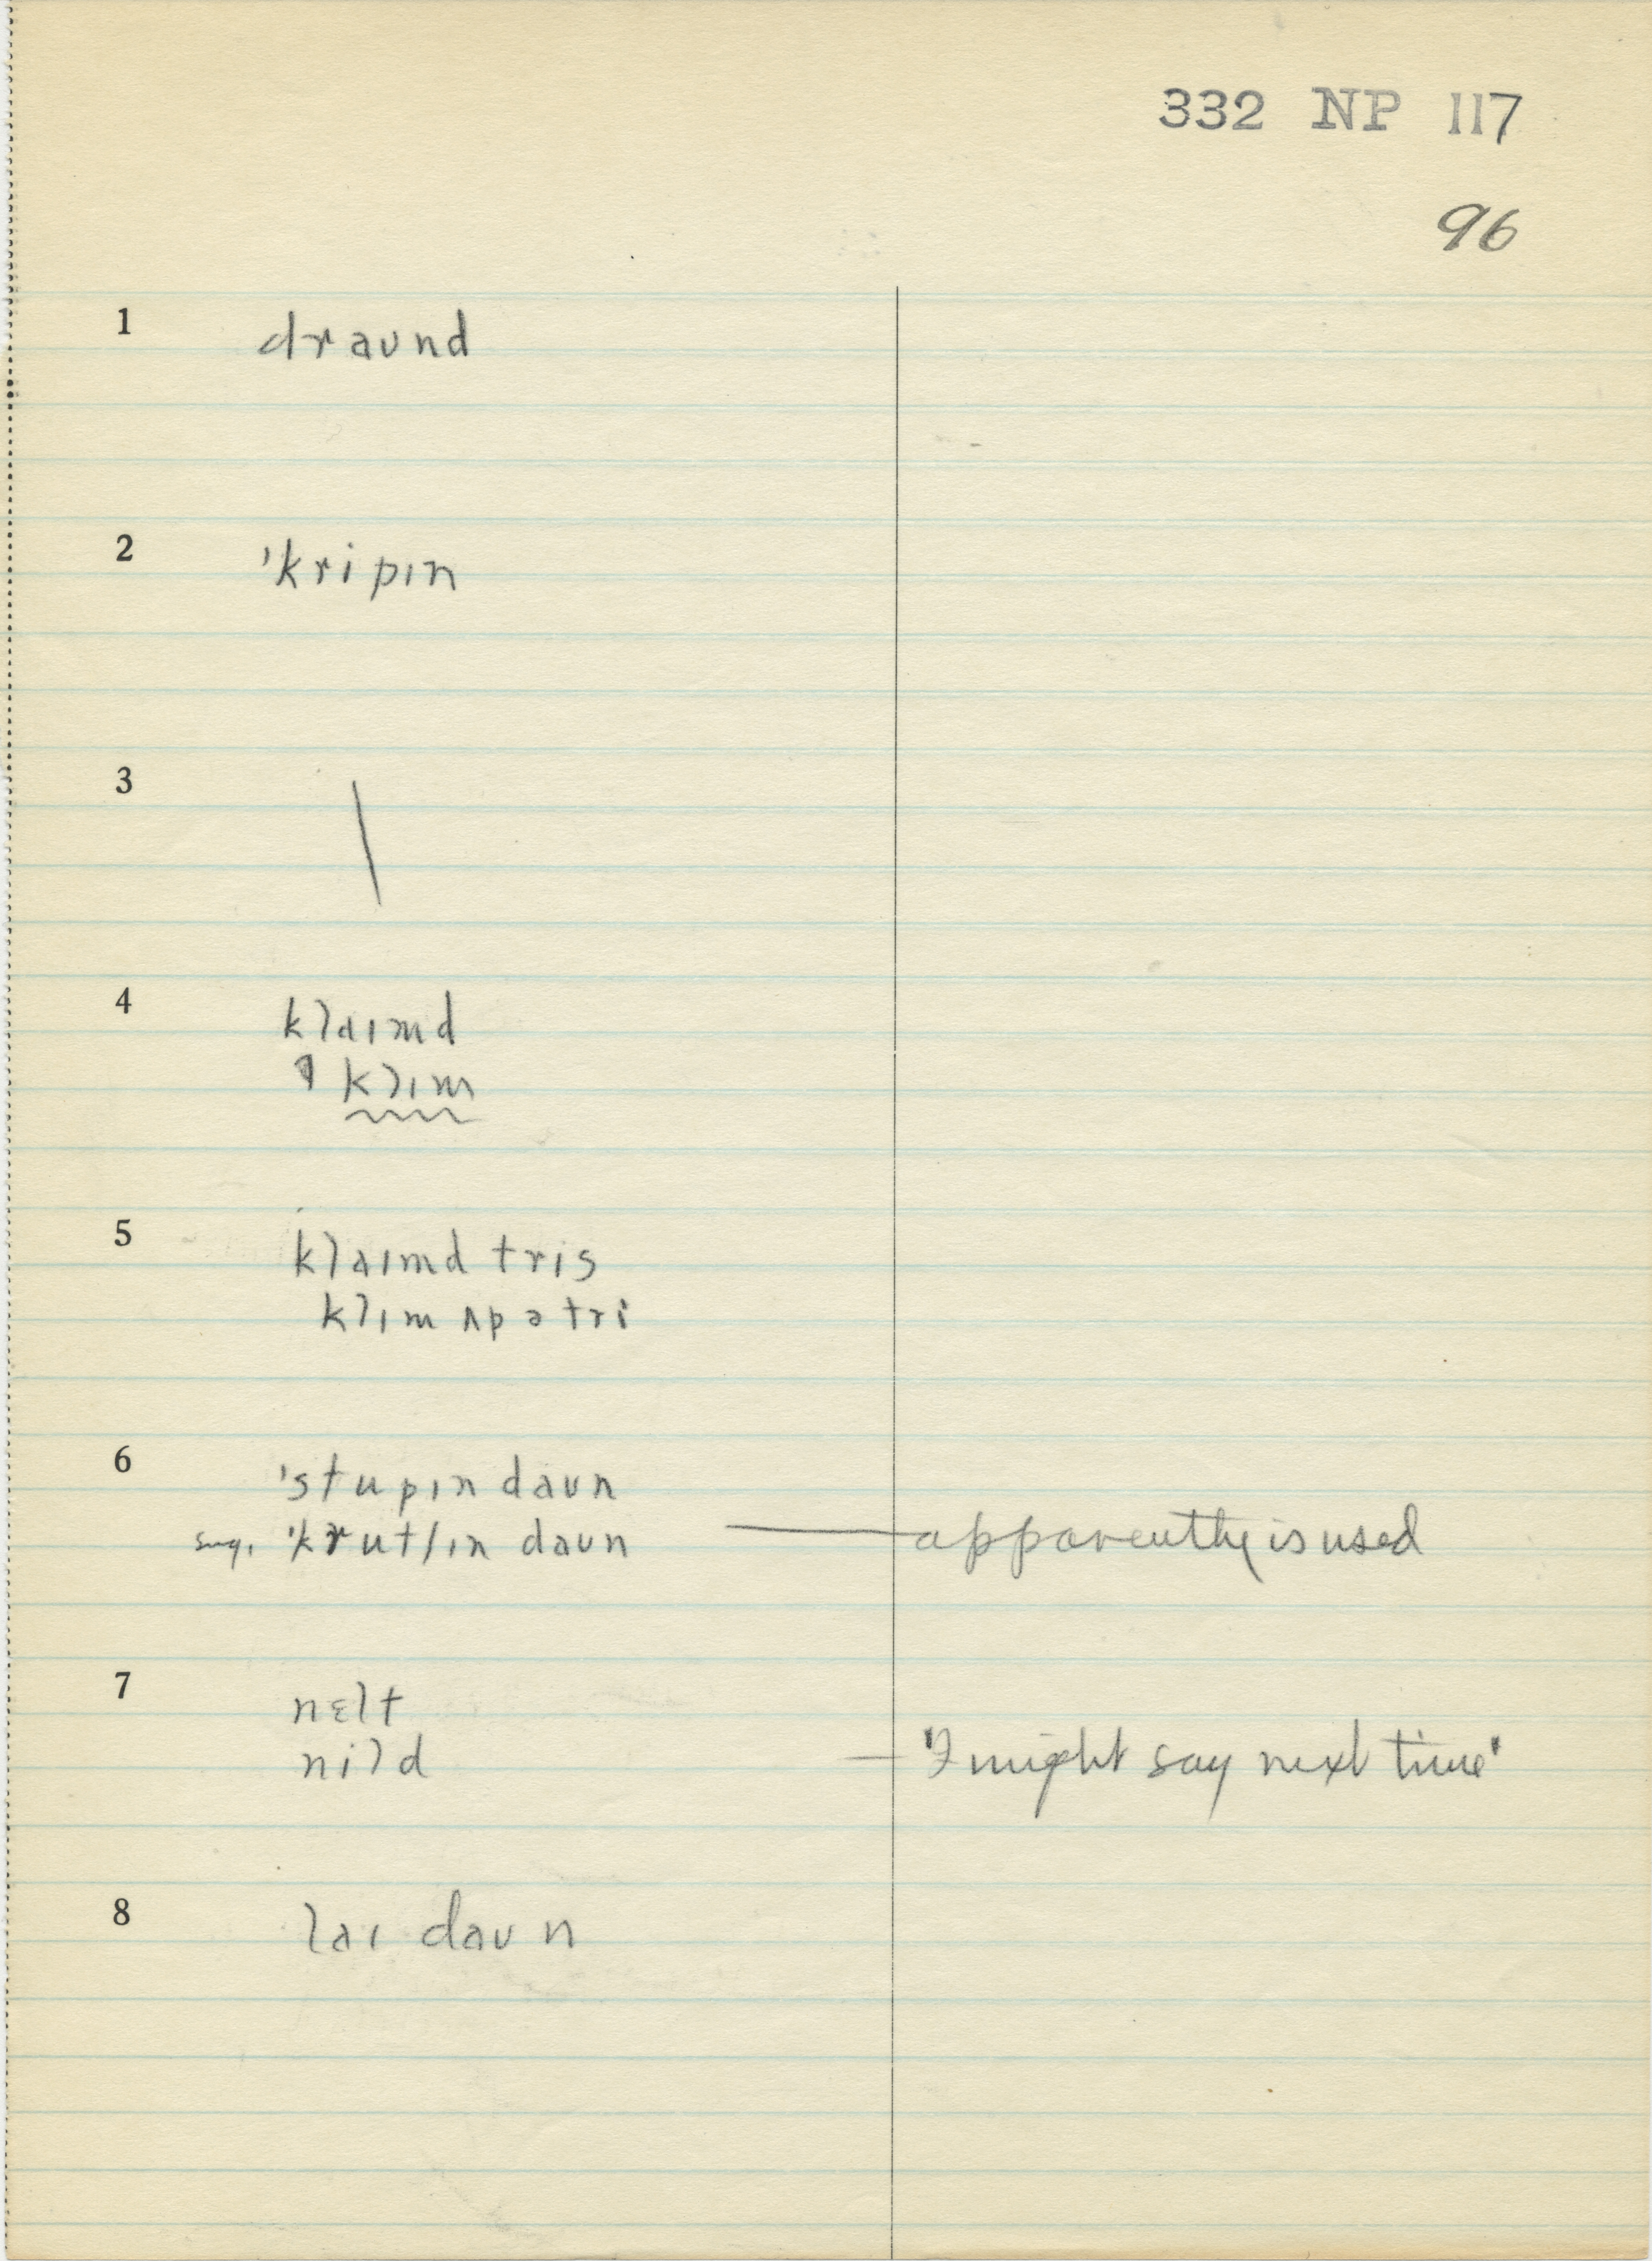 332 NP 117
96
1 draʊnd
2 'kripɪn
3 \
4 klaɪmd
klɪm
5 klaɪmd tris
klɪm ʌp ə tri
6 'stupɪn daʊn
sug. 'krutʃɪn daʊn — apparently is used
7 nɛlt
nild — "I might say next time"
8 laɪ daʊn